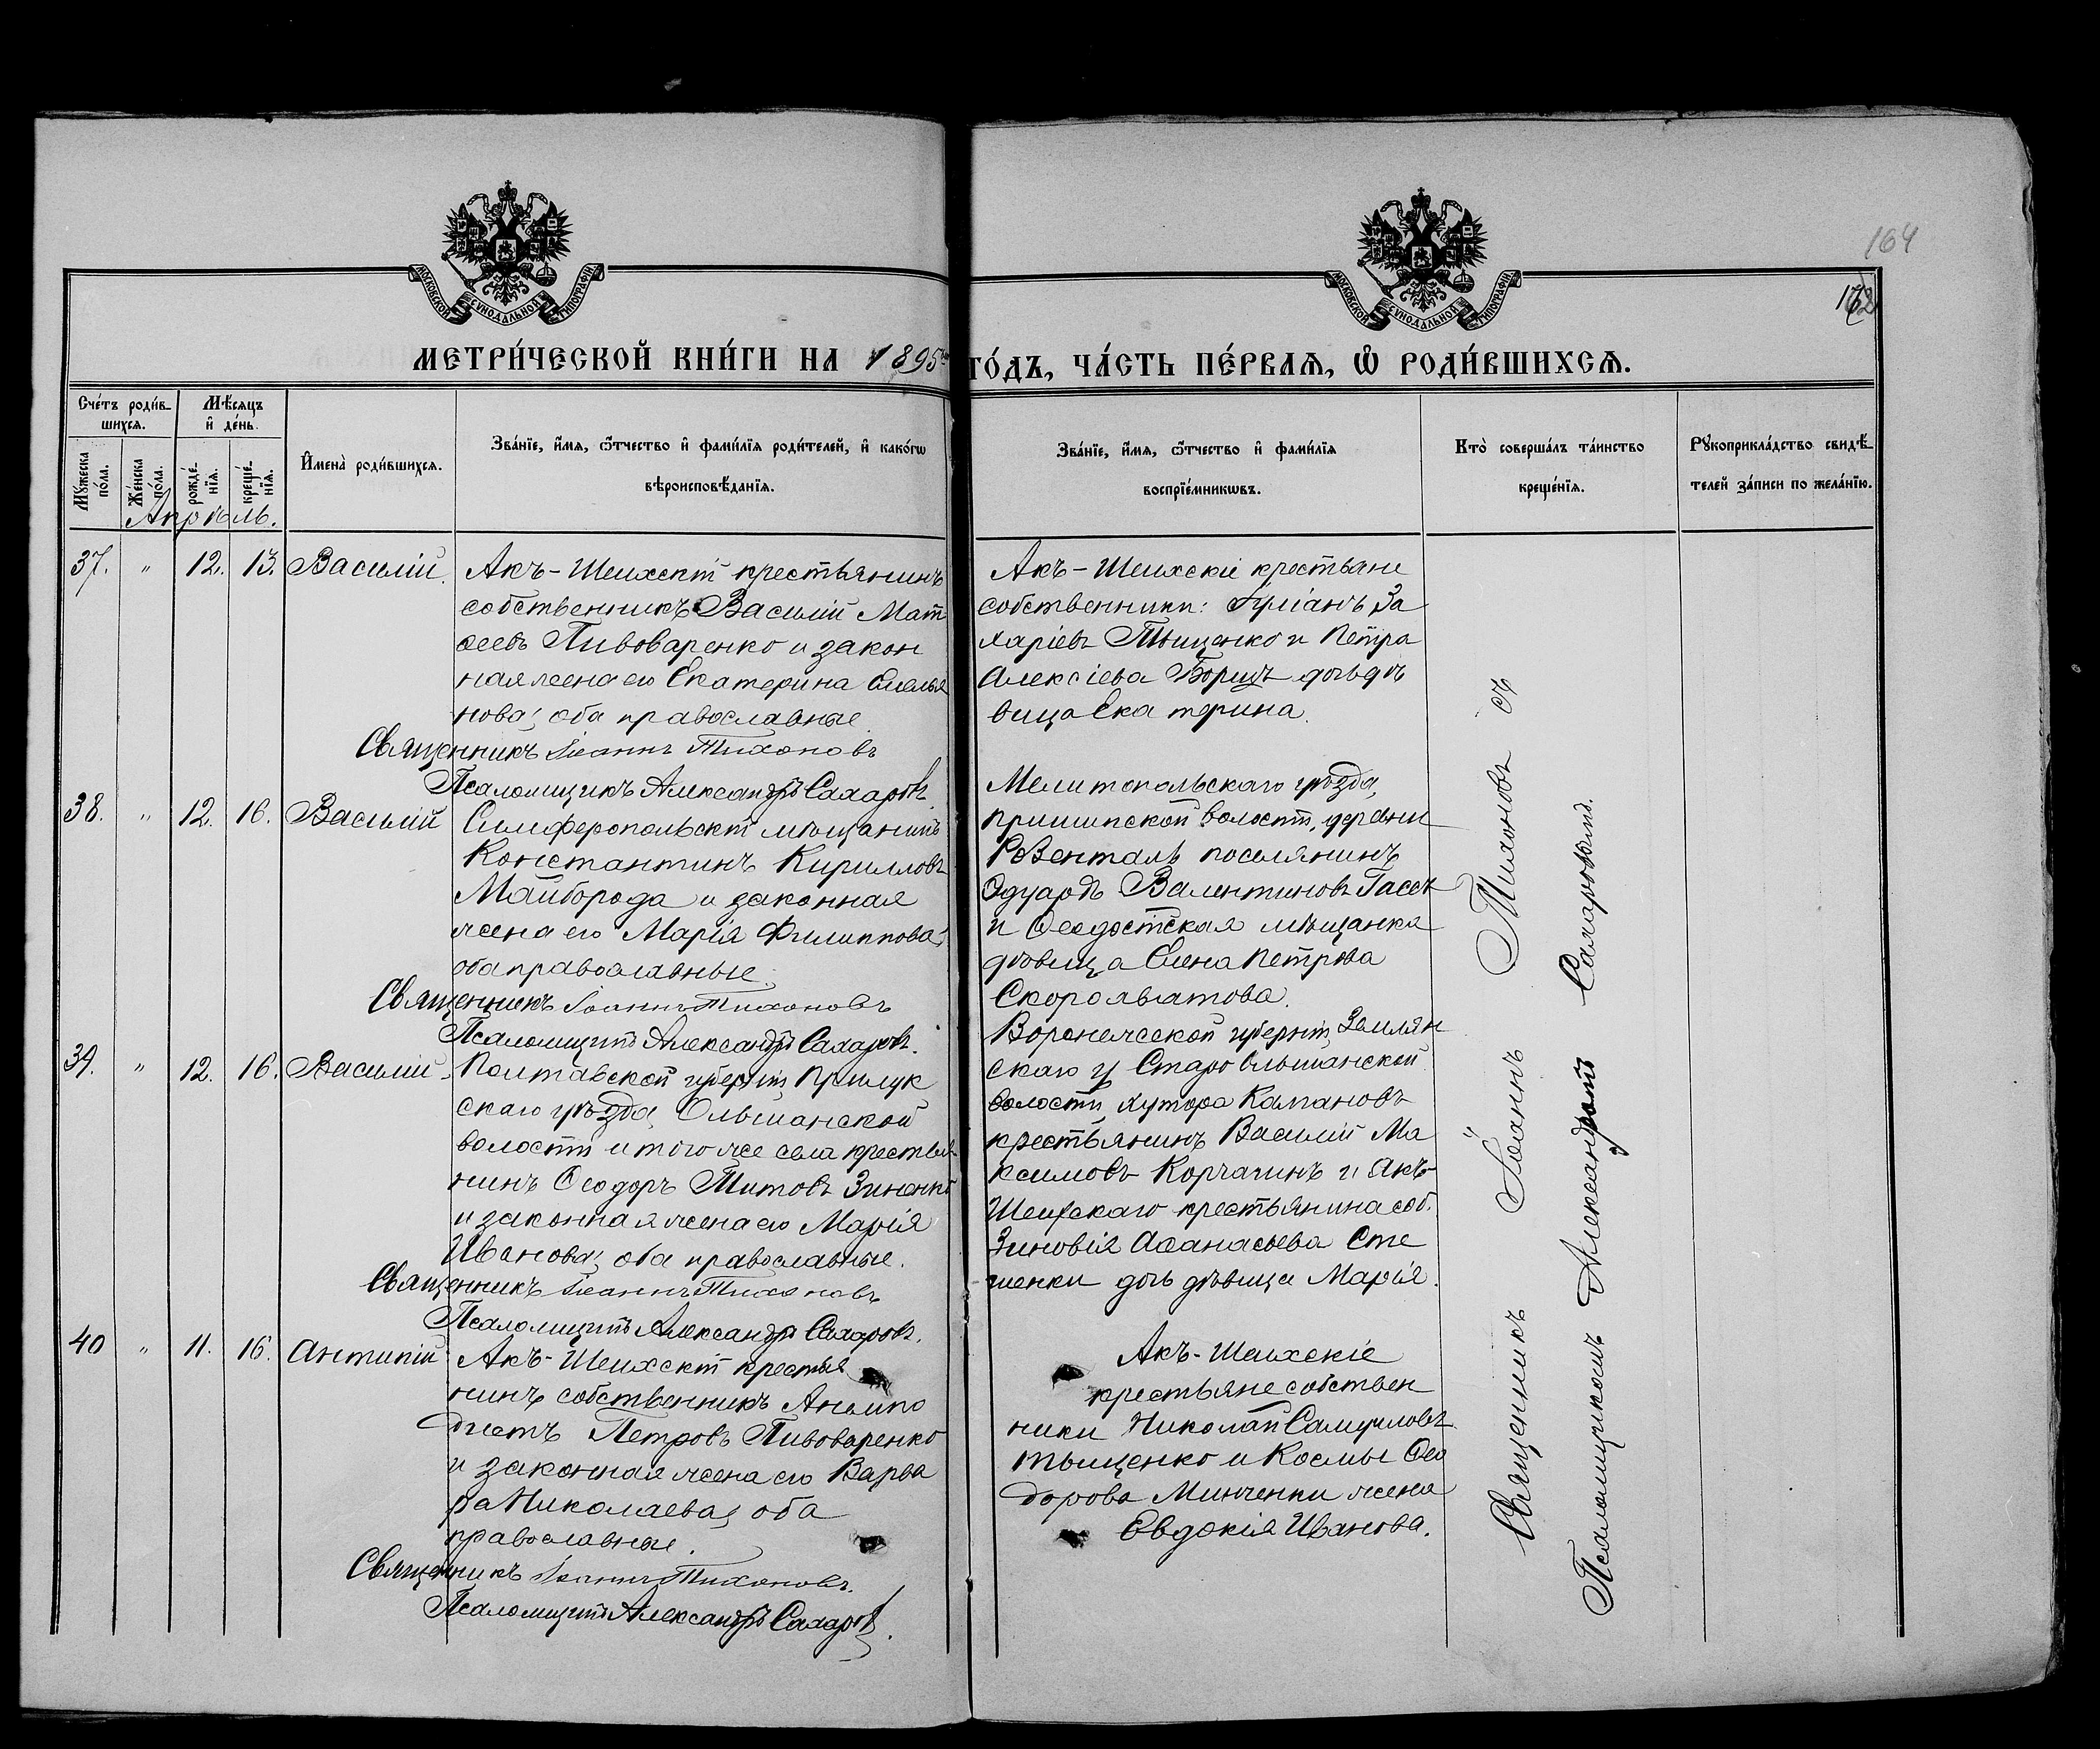 164
162
МОСКОВСКОЙ СѴНОДАЛЬНОЙ ТИПОГРАФІИ
МОСКОВСКОЙ СѴНОДАЛЬНОЙ ТИПОГРАФІИ
МЕТРИ́ЧЕСКОЙ КНИ́ГИ НА 1895 ГО́ДЪ, ЧА́СТЬ ПЕ́РВАѦ, Ѽ РОДИ́ВШИХСѦ.
Сче́тъ роди́в-
шихсѧ.
Мꙋ́жеска
по́ла.
Же́нска
по́ла.
Мѣ́сѧцъ
и҆ де́нь.
рожде́-
нїѧ.
креще́-
нїѧ.
И҆мена̀ роди́вшихсѧ.
Зва́нїе, и҆́мѧ, ѻ҆́тчество и҆ фами́лїѧ роди́телей, и҆ како́гѡ
вѣроисповѣ́данїѧ.
Зва́нїе, и҆́мѧ, ѻ҆́тчество и҆ фами́лїѧ
воспрїе́мникѡвъ.
Кто̀ соверша́лъ та́инство
креще́нїѧ.
Рꙋкоприкла́дство свидѣ́-
телей за́писи по жела́нїю.
Апрѣль.
37. " 12. 13. Василій.
Акъ-Шеихскій крестьянинъ
собственникъ Василій Мат
ѳеевъ Пивоваренко и закон
ная жена его Екатерина Емелья
нова, оба православные.
Священникъ Іоаннъ Тихоновъ
Псаломщикъ Александръ Сахаровъ.
Акъ-Шеихскіе крестьяне
собственники: Куліанъ За
харіевъ Тыщенко и Петра
Алексіева Борщъ дочь дѣ
вица Екатерина.
38. " 12. 16. Василій
Симферопольскій мѣщанинъ
Константинъ Кирилловъ
Майборода и законная
жена его Марія Филиппова,
оба православные.
Священникъ Іоаннъ Тихоновъ
Псаломщикъ Александръ Сахаровъ.
Мелитопольскаго уѣзда,
Пришибской волости, деревни
Розенталь поселянинъ
Эдуардъ Валентиновъ Гассъ
и Ѳеодосійская мѣщанка
дѣвица Елена Петрова
Скорохватова.
39. " 12. 16. Василій
Полтавской губерніи Прилук
скаго уѣзда, Ольшанской
волости и того же села крестья
нинъ Ѳеодоръ Титовъ Зиненко
и законная жена его Марія
Иванова, оба православные.
Священникъ Іоаннъ Тихоновъ
Псаломщикъ Александръ Сахаровъ.
Воронежской губерніи, Землян
скаго у Старо Ольшанской
волости, хутора Камановъ
крестьянинъ Василій Ма
ксимовъ Корчагинъ и Акъ-
Шеихскаго крестьянина соб.
Зиновія Аѳанасьева Сте
шенки дочь дѣвица Марія.
40 " 11. 16. Антипій
Акъ-Шеихскій крестья
нинъ собственникъ Анемпо
дистъ Петровъ Пивоваренко
и законная жена его Варва
ра Николаева, оба
православные.
Священникъ Іоаннъ Тихоновъ.
Псаломщикъ Александръ Сахаровъ.
Акъ-Шеихскіе
крестьяне собствен
ники Николай Самуиловъ
Тыщенко и Космы Ѳео
дорова Минченки жена
Евдокія Иванова.
Священникъ Іоаннъ Тихоновъ съ
Псаломщикомъ Александромъ Сахаровымъ.